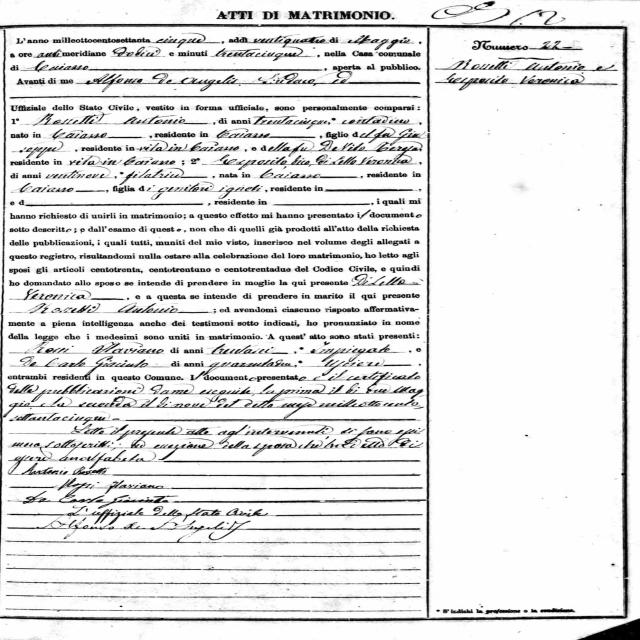 ATTI DI MATRIMONIO.
L'anno millottocentosettanta cinque, addì ventiquattro di Maggio,
a ore antimeridiane dodici e minuti trentacinque, nella Casa comunale
di Caiazzo, aperta al pubblico.
Avanti di me Alfonso de Angelis Sindaco, ed
Uffiziale dello Stato Civile, vestito in forma uffiziale, sono personalmente comparsi:
1° Rossetti Antonio, di anni trentacinque, contadino,
nato in Caiazzo, residente in Caiazzo, figlio del fu Giu
seppe, residente in vita in Caiazzo, e della fu De Vito Teresa
residente in vita in Caiazzo; 2° Di Letto Veronica,
di anni ventinove, filatrice, nata in Caiazzo, residente in
Caiazzo, figlia di genitori ignoti, residente in
e d, residente in, i quali mi
hanno richiesto di unirli in matrimonio; a questo effetto mi hanno presentato il documento
sotto descritto; e dall'esame di questo, non che di quelli già prodotti all'atto della richiesta
delle pubblicazioni, i quali tutti, muniti del mio visto, inserisco nel volume degli allegati a
questo registro, risultandomi nulla ostare alla celebrazione del loro matrimonio, ho letto agli
sposi gli articoli centotrenta, centotrentuno e centotrentadue del Codice Civile, e quindi
ho domandato allo sposo se intende di prendere in moglie la qui presente Di Letto
Veronica, e a questa se intende di prendere in marito il qui presente
Rossetti Antonio; ed avendomi ciascuno risposto affermativa-
mente a piena intelligenza anche dei testimoni sotto indicati, ho pronunziato in nome
della legge che i medesimi sono uniti in matrimonio. A quest'atto sono stati presenti:
Rossi Flaviano di anni trentasei, Impiegato, e
De Carlo Giacinto di anni quarantadue, Usciere,
entrambi residenti in questo Comune. I document presentato è il certificato
delle pubblicazioni da me eseguite, la prima il dì due Mag
gio, e la seconda il dì nove del detto mese millottocento
settantacinque
Letto il presente atto agl'intervenuti si sono essi
meco sottoscritti ad eccezione della sposa che ha detto di
essere analfabeta
Antonio Rossetti
Rossi Flaviano
De Carlo Giacinto
L'uffiziale dello Stato Civile
Alfonso de Angelis
Numero 22
Rossetti Antonio e
Esposito Veronica
* S'indichi la professione o la condizione.